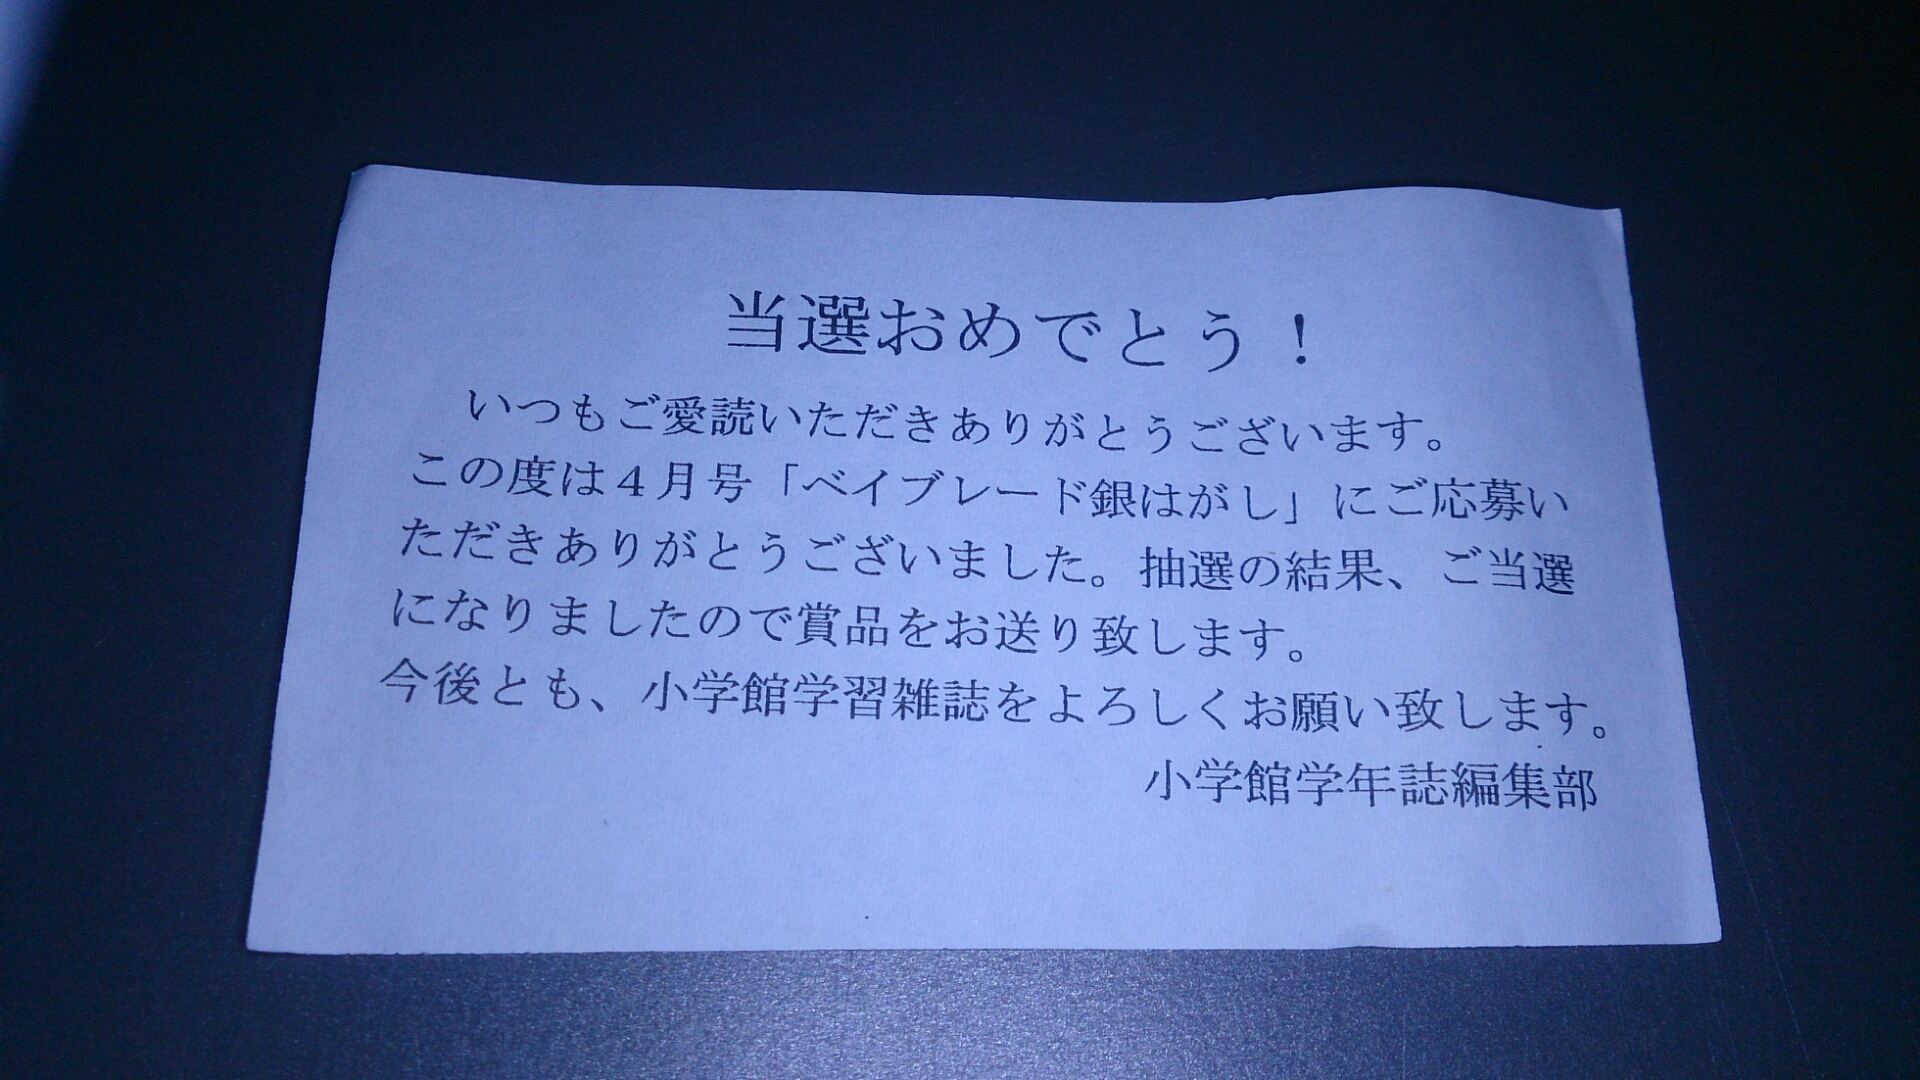 当選おめでとう！
いつもご愛読いただきありがとうございます。
この度は４月号「ベイブレード銀はがし」にご応募い
ただきありがとうございました。抽選の結果、ご当選
になりましたので賞品をお送り致します。
今後とも、小学館学習雑誌をよろしくお願い致します。
小学館学年誌編集部